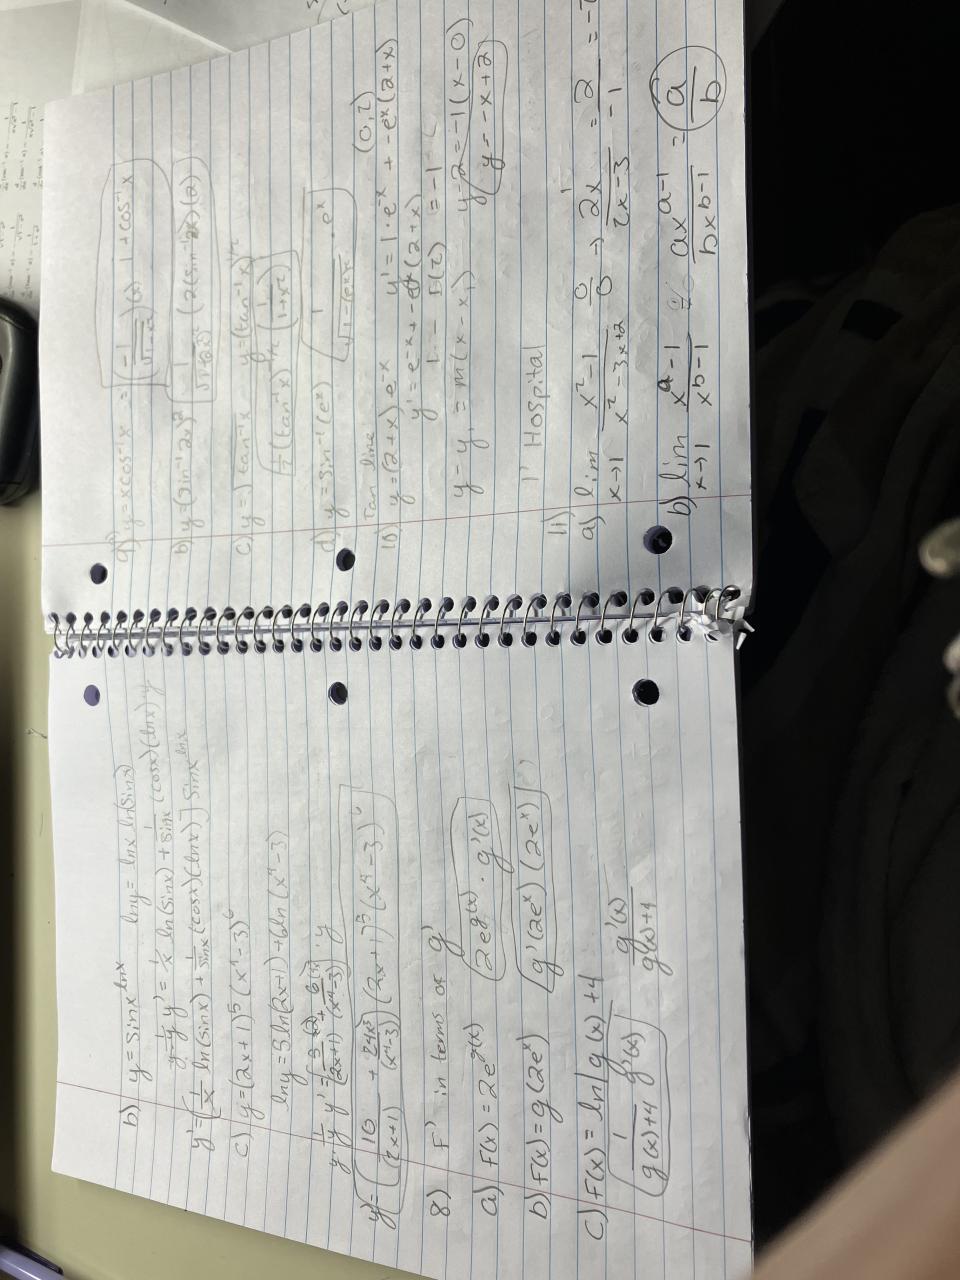 b) y = sinx^lnx   lny = lnx ln(sinx)
y · 1/y y' = 1/x ln(sinx) + 1/sinx (cosx)(lnx) y
y' = [1/x ln(sinx) + 1/sinx (cosx)(lnx)] sinx^lnx
c) y = (2x+1)^5 (x^4-3)^6
lny = 5ln(2x+1) + 6ln(x^4-3)
y · 1/y y' = (2x+1) (x^4-3) · y
y' = (10/(2x+1) + 24x^3/(x^4-3)) (2x+1)^5 (x^4-3)^6
8) F' in terms of g'
a) F(x) = 2e^g(x)   2e^g(x) · g'(x)
b) F(x) = g(2e^x)   g'(2e^x)(2e^x)
c) F(x) = ln|g(x)+4   g'(x)/g(x)+4
1/g(x)+4 g'(x)
a) y = xcos^-1 x = (-1/√1-x^2)(x) 1 + cos^-1 x
b) y = (sin^-1 2x)^2 (2(sin^-1 2x)(2)
c) y = √tan^-1 x   y = (tan^-1 x)^1/2
1/2 (tan^-1 x) (1/1+x^2)
d) y = sin^-1(e^x)   1/√1-(e^x · e^x
Tan line
10) y = (2+x)e^-x   y' = 1 · e^-x + -e^x(2+x)   (0,2)
y' = e^-x + -e^x(2+x)
1 - 1(2) = -1
y - y1 = m(x - x1)   y-2 = -1(x-0)
y = -x+2
l' Hospital
11)
a) lim x→1 x^2-1/x^2-3x+2   0/0 → 2x/2x-3 = 2/-1 = -2
b) lim x→1 x^a-1/x^b-1   ax^a-1/bx^b-1 = a/b